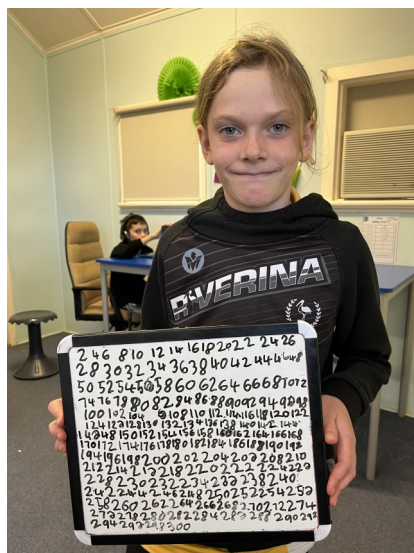 RIVERINA
2 4 6 8 10 12 14 16 18 20 22 24 26
28 30 32 34 36 38 40 42 44 46 48
50 52 54 56 58 60 62 64 66 68 70 72
74 76 78 80 82 84 86 88 90 92 94 96 98
100 102 104 106 108 110 112 114 116 118 120 122
124 126 128 130 132 134 136 138 140 142 144
146 148 150 152 154 156 158 160 162 164 166 168
170 172 174 176 178 180 182 184 186 188 190 192
194 196 198 200 202 204 206 208 210
212 214 216 218 220 222 224 226
228 230 232 234 236 238 240
242 244 246 248 250 252 254 256
258 260 262 264 266 268 270 272 274
276 278 280 282 284 286 288 290 292
294 296 298 300